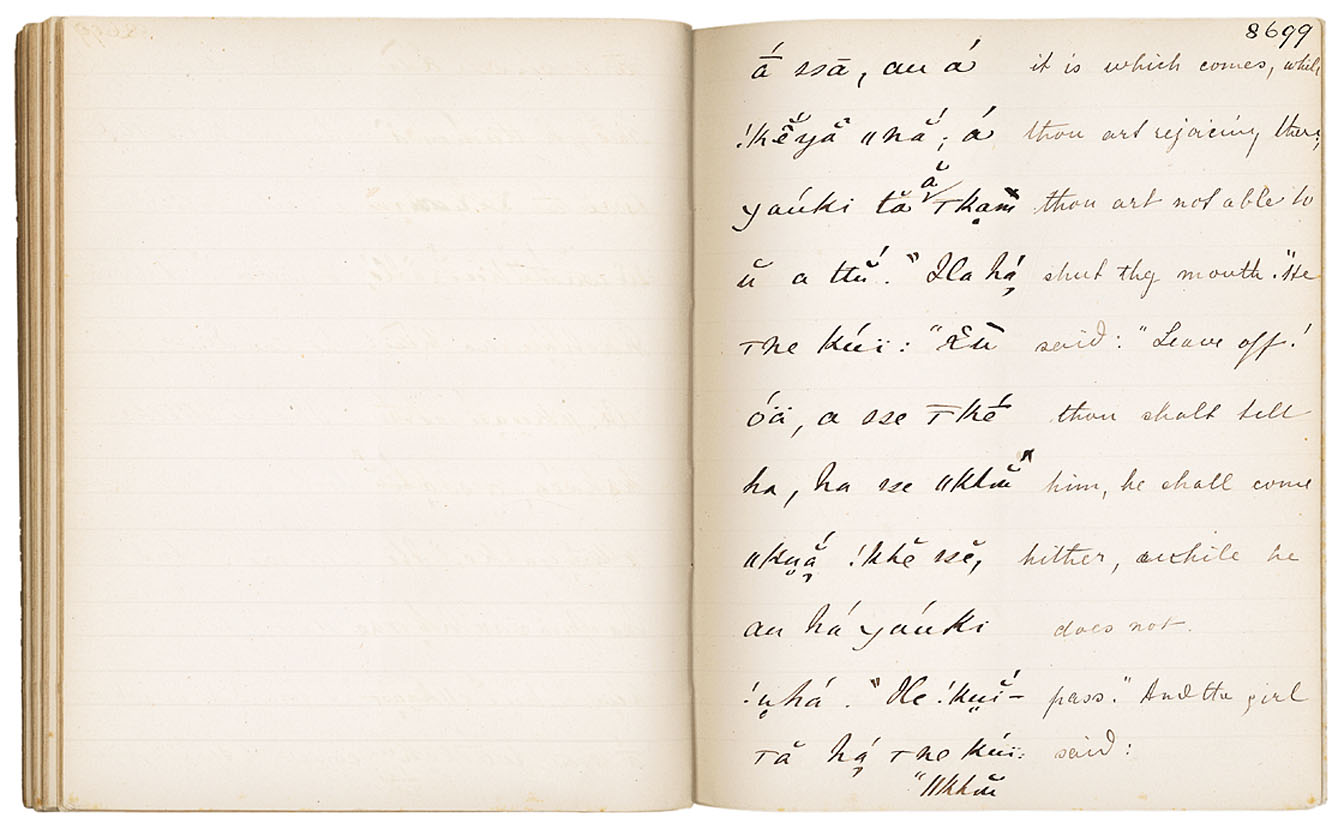 8699
á̄ ssā, au á it is which comes, while
!kĕ́yă ǁnắ; á thou art rejoicing there;
yaúki tă ă ⊤ka̤m̀ thou art not able to
ŭ a ttŭ́." Ha há̤ shut thy mouth." He
⊤ne kúï: "Ĕ̀ǹ said: "Leave off!
óä, a sse ⊤ké̄ thou shalt tell
ha, ha sse ǁkhŏe him, he shall come
ǁkṳắ̤ !khĕ ssĕ, hither, while he
au há yaúki does not
!ṳhá." He !kṳĭ́- pass." And the girl
⊤ă há̤ ⊤ne kúï: said:
"ǁkhŏe